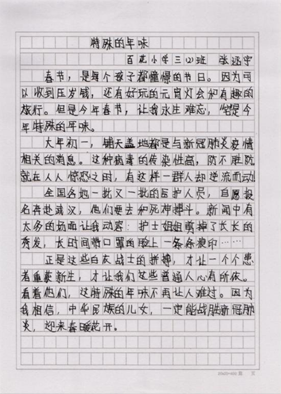 特殊的年味
百花小学三(2)班 张
春节，是每个孩子都懂得的节日。因为可
以收到压岁钱，还有好玩的元宵灯会和有趣的
旅行。但是今年春节，让我永生难忘，是今
年特殊的年味。
大年初一，铺天盖地都是与新冠肺炎疫情
相关的消息。这种病毒的传染性高，防不胜防
就在人人惊恐之时，有这样一群人却逆流而动
全国各地一批又一批的医护人员，自愿报
名奔赴武汉，他们要去和死神搏斗。新闻中有
太多的场面让我动容：护士姐姐剪掉了长长的
秀发，长时间戴口罩而脸上一条条痕印……
正是这些白衣战士的拼搏，才让一个个患
者重获新生，才让我们这些普通人心有所依。
看着他们，这特殊的年味不再让人难过。因为
我相信，中华民族的儿女，一定能战胜新冠肺
炎，迎来春暖花开。